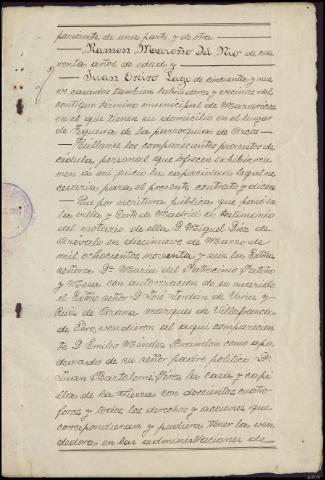 pareciente de una parte, y de otra
Ramon Maroño del Rio de cua
renta años de edad y
Juan Oreiro Lago de cincuenta y nue
ve casados tambien labradores y vecinos del
contiguo término municipal de Mazaricos
en el que tienen su domicilio en el lugar
de Figueira de la parroquia de Arcos
Hállanse los comparecentes provistos de
cédula personal que ofrecen exhibir, reu
nen á mi juicio la capacidad legal ne
cesaria para el presente contrato y dicen
Que por escritura pública que pasó en
la villa y Corte de Madrid á testimonio
del notario de ella D. Miguel Diez de
Arévalo en diecinueve de Marzo de
mil ochocientos noventa y seis la Exma
señora Dª Maria del Patrocinio Patiño
y Mesa con autorizacion de su marido
el Exmo señor D. José Jordan de Urries y
Ruiz de Arana marques de Villafranca
de Ebro, vendieron al aqui comparecien
te D. Emilio Méndez Brandon como apo
derado de su señor padre politico D.
Juan Bartolomé Pérez la casa y capi
lla de la Tierra con doscientos cuatro
foros y todos los derechos y acciones que
correspondieran y pudiera tener la ven
dedora en las administraciones de